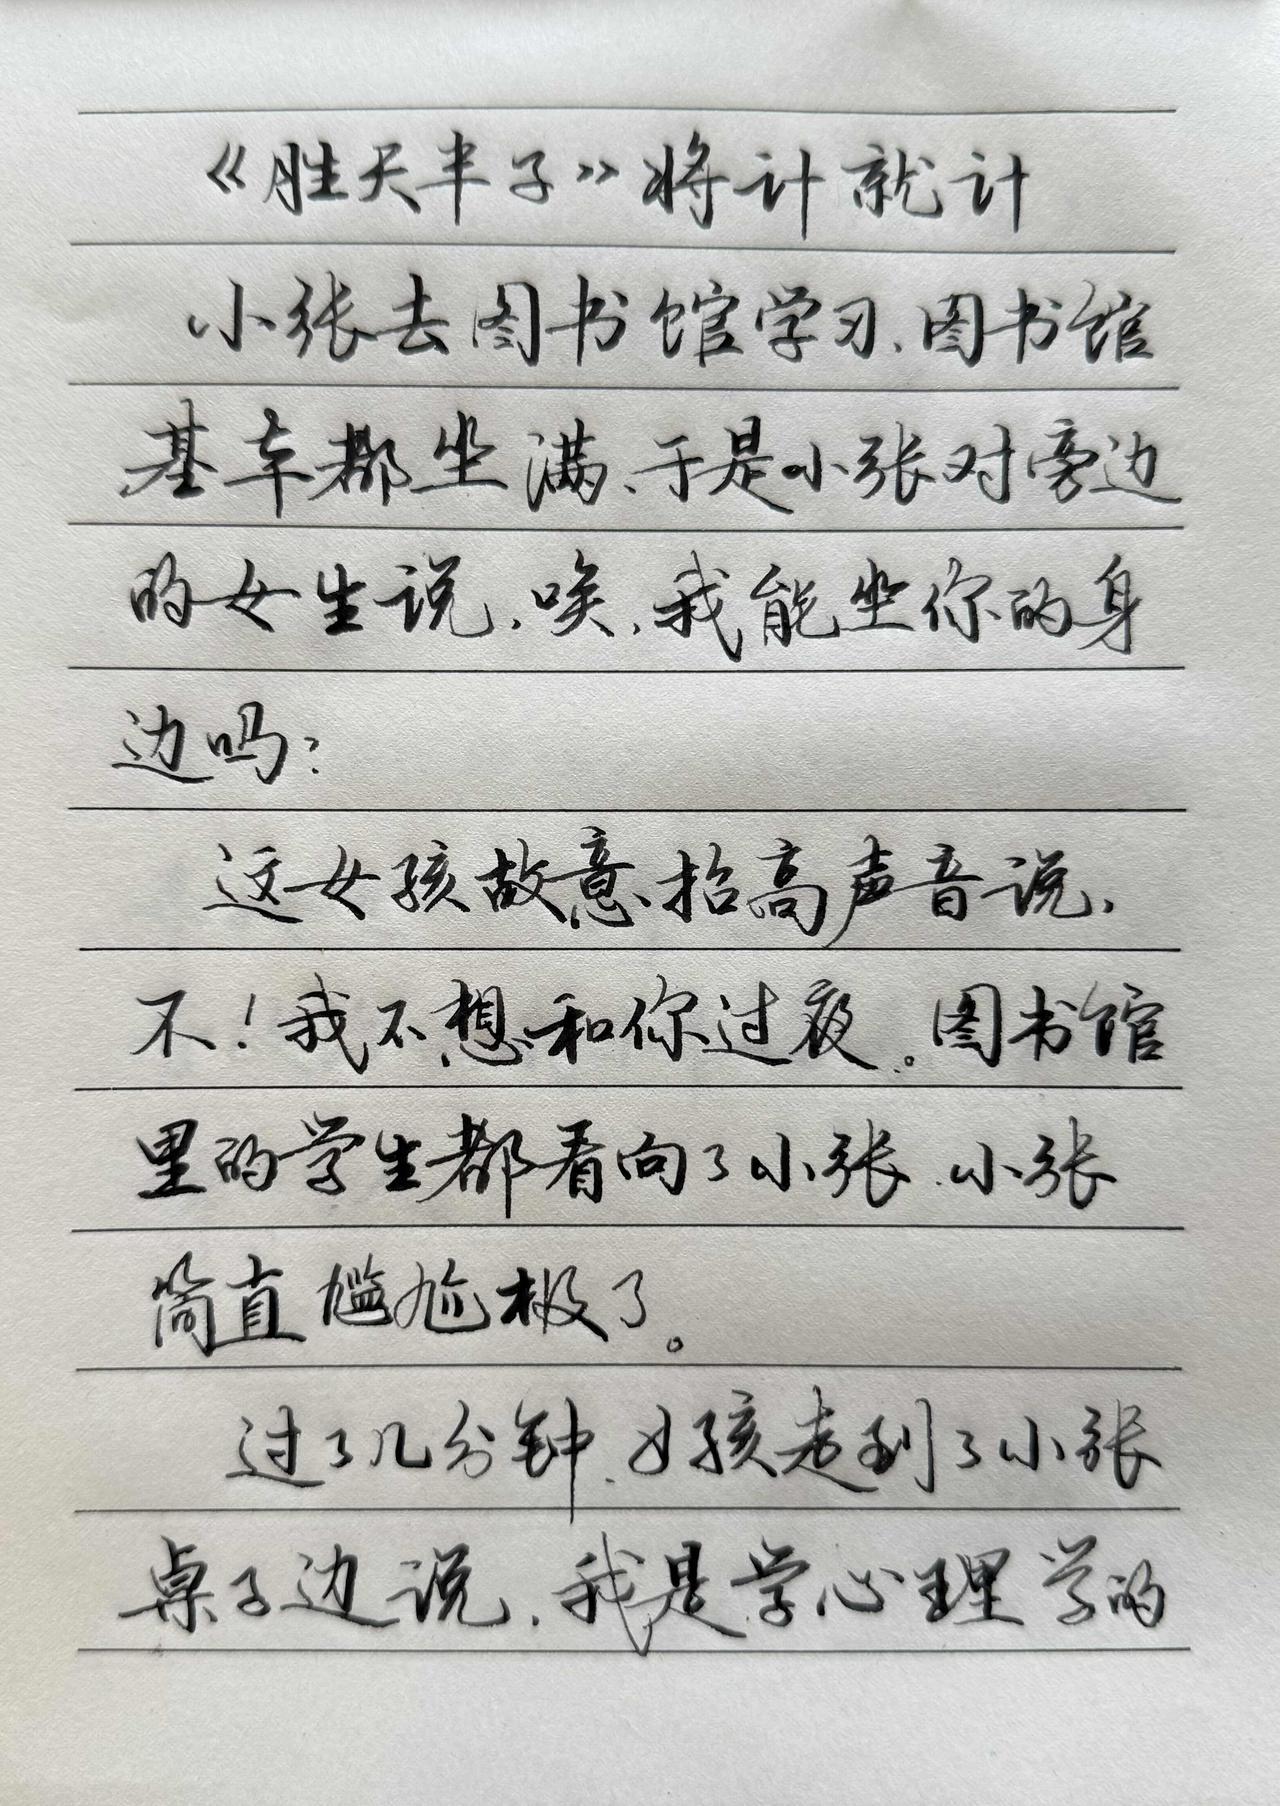 《胜天半子》将计就计
小张去图书馆学习、图书馆
基本都坐满、于是小张对旁边
的女生说、唉、我能坐你的身
边吗？
这女孩故意抬高声音说、
不！我不想和你过夜。图书馆
里的学生都看向了小张、小张
简直尴尬极了。
过了几分钟、女孩走到了小张
桌子边说、我是学心理学的